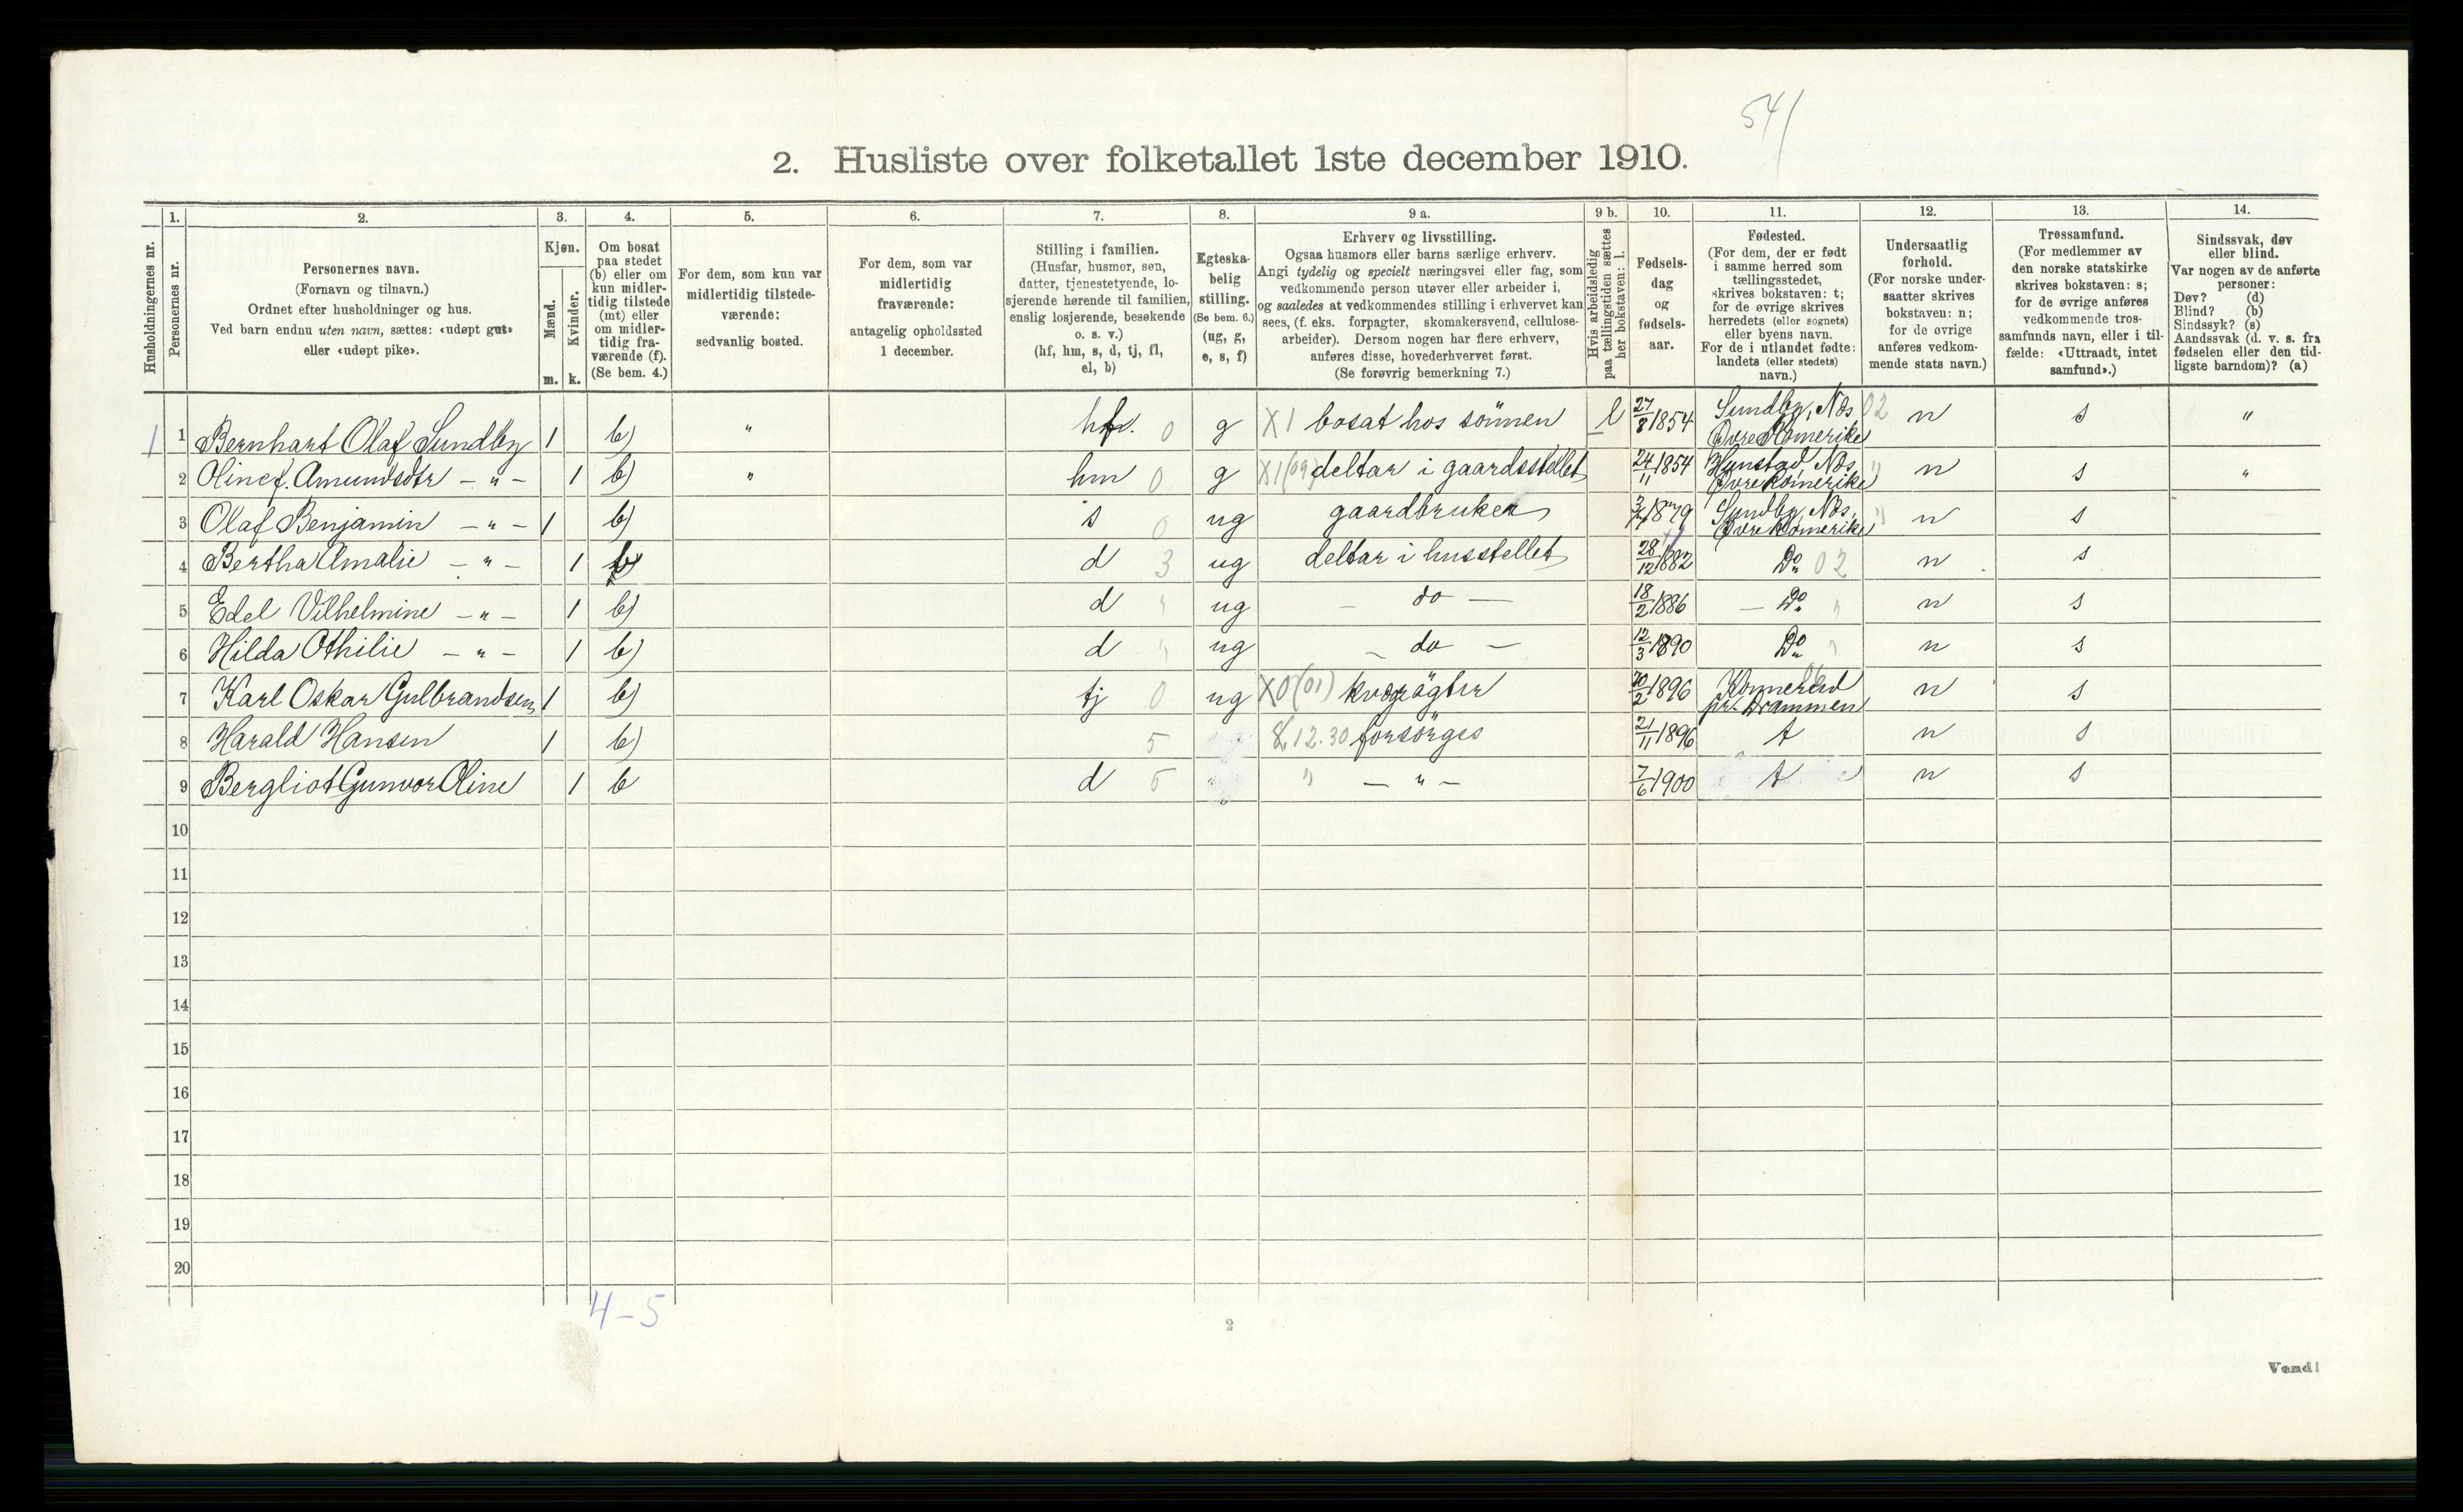 541
2. Husliste over folketallet 1ste december 1910.
Husholdningernes nr.
1.
Personernes nr.
2.
Personernes navn.
(Fornavn og tilnavn.)
Ordnet efter husholdninger og hus.
Ved barn endnu uten navn, sættes: «udøpt gut»
eller «udøpt pike».
3.
Kjøn.
Mænd.
Kvinder.
m. k.
4.
Om bosat
paa stedet
(b) eller om
kun midler-
tidig tilstede
(mt) eller
om midler-
tidig fra-
værende (f).
(Se bem. 4.)
5.
For dem, som kun var
midlertidig tilstede-
værende:
sedvanlig bosted.
6.
For dem, som var
midlertidig
fraværende:
antagelig opholdssted
1 december.
7.
Stilling i familien.
(Husfar, husmor, søn,
datter, tjenestetyende, lo-
sjerende hørende til familien,
enslig losjerende, besøkende
o. s. v.)
(hf, hm, s, d, tj, fl,
el, b)
8.
Egteska-
belig
stilling.
(Se bem. 6.)
(ug, g,
e, s, f)
9 a.
Erhverv og livsstilling.
Ogsaa husmors eller barns særlige erhverv.
Angi tydelig og specielt næringsvei eller fag, som
vedkommende person utøver eller arbeider i,
og saaledes at vedkommendes stilling i erhvervet kan
sees, (f. eks. forpagter, skomakersvend, cellulose-
arbeider). Dersom nogen har flere erhverv,
anføres disse, hovederhvervet først.
(Se forøvrig bemerkning 7.)
9 b.
Hvis arbeidsledig
paa tællingstiden sættes
her bokstaven: l.
10.
Fødsels-
dag
og
fødsels-
aar.
11.
Fødested.
(For dem, der er født
i samme herred som
tællingsstedet,
skrives bokstaven: t;
for de øvrige skrives
herredets (eller sognets)
eller byens navn.
For de i utlandet fødte:
landets (eller stedets)
navn.)
12.
Undersaatlig
forhold.
(For norske under-
saatter skrives
bokstaven: n;
for de øvrige
anføres vedkom-
mende stats navn.)
13.
Trossamfund.
(For medlemmer av
den norske statskirke
skrives bokstaven: s;
for de øvrige anføres
vedkommende tros-
samfunds navn, eller i til-
fælde: «Uttraadt, intet
samfund».)
14.
Sindssvak, døv
eller blind.
Var nogen av de anførte
personer:
Døv? (d)
Blind? (b)
Sindssyk? (s)
Aandssvak (d. v. s. fra
fødselen eller den tid-
ligste barndom)? (a)
1 1 Bernhart Olaf Sundby 1 b) " hf. 0 g X1 bosat hos sönnen l 27/8 1854 Sundby, Næs 02 Øvre Romerike n s "
2 Oline f. Amundsdtr – " – 1 b) " hm 0 g X1 (09) deltar i gaardsstellet 24/11 1854 Hunstad, Næs, Øvre Romerike " n s "
3 Olaf Benjamin – " – 1 b) s 0 ug gaardbruker 1879 Sundby, Næs, Øvre Romerike " n s
4 Bertha Amalie – " – 1 b) d 3 ug deltar i husstellet 28/12 1882 Do 02 n s
5 Edel Vilhelmine – " – 1 b) d " ug – do – 18/2 1886 – Do " n s
6 Hilda Othilie – " – 1 b) d " ug – do – 12/3 1890 Do " n s
7 Karl Oskar Gulbrandsen 1 b) tj 0 ug X0 (01) kvægrögter 20/2 1896 Konnerud pr. Drammen n s
8 Harald Hansen 1 b) 5 8.12.30 forsörges 21/11 1896 t n s
9 Bergliot Gunvor Oline 1 b d 5 " – " – 7/6 1900 t n s
10
11
12
13
14
15
16
17
18
19
20
4 – 5
2
Vend!